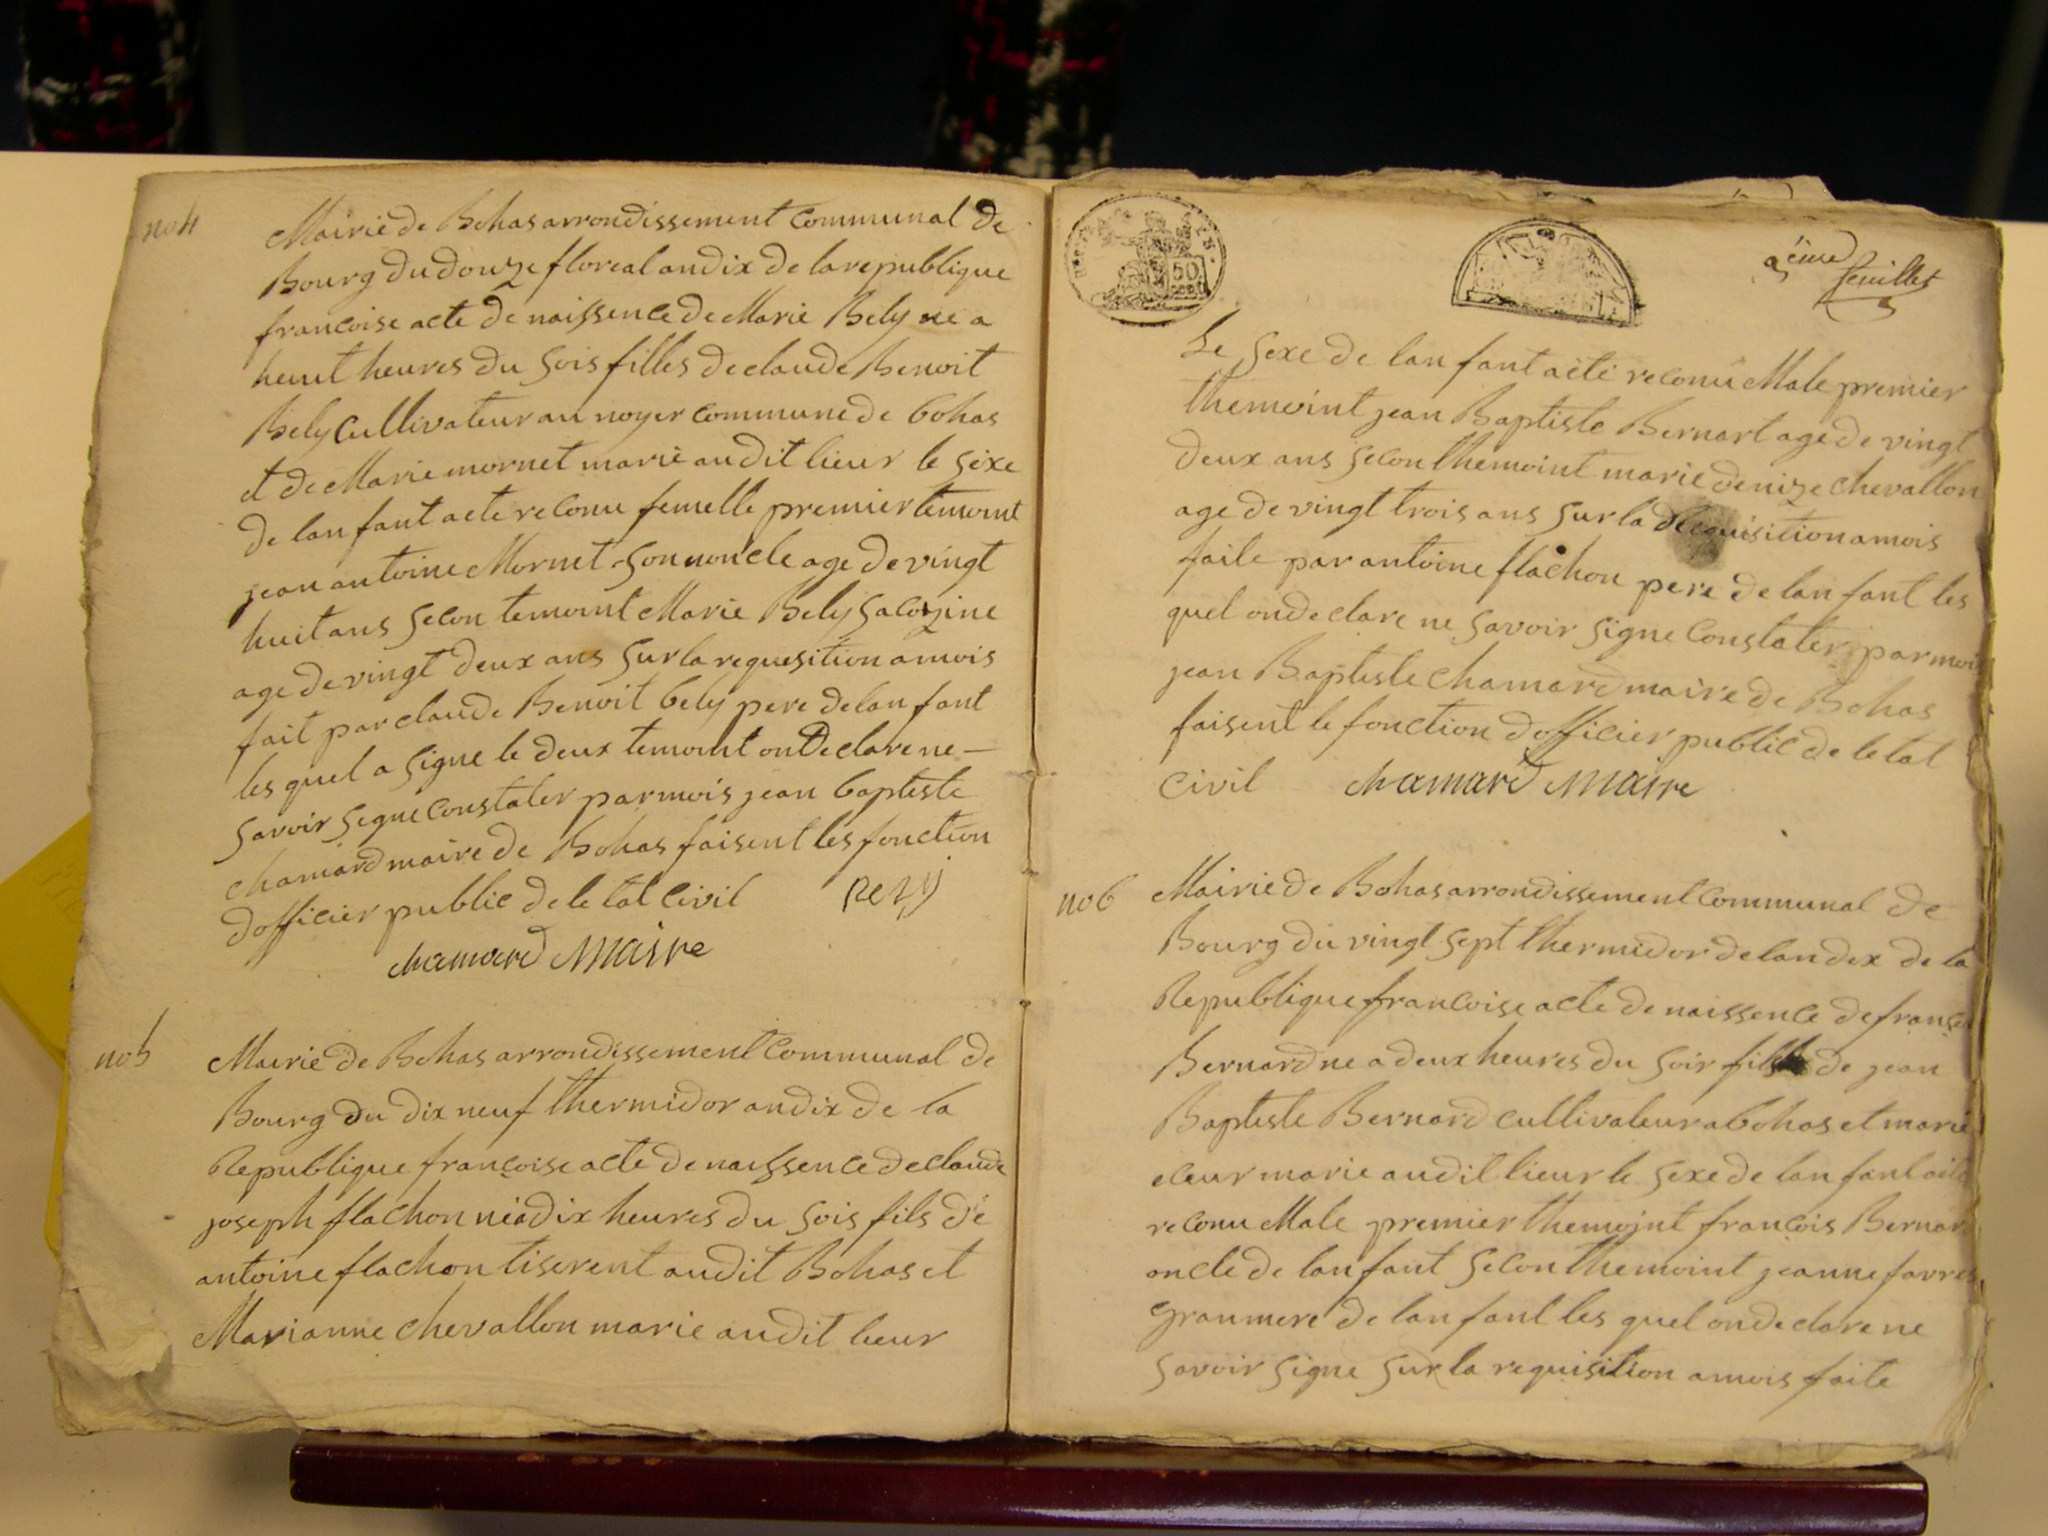 no 4
Mairie de Bohas arrondissement communal de
Bourg du douze floreal an dix de la republique
francoise acte de naissence de Marie Bely ne a
heuit heures du sois filles de claude Benoit
Bely cullivateur au noyer commune de bohas
et de Marie mornet marie audit lieur le sexe
de lanfant aete reconu femelle premier temoint
jean antoine Mornet son noncle age de vingt
huit ans secon temoint Marie Bely sa cozine
age de vingt deux ans sur la requesition a mois
fait par claude Benoit bely pere de lanfant
les quel a signe le deux temoint on declare ne
savoir segne constater par mois jean baptiste
chamard maire de Bohas faisent les fonction
dofficier public de le tat civil
chamard Maire
no 5
Mairie de Bohas arrondissement communal de
Bourg du dix neuf thermidor an dix de la
Republique francoise acte de naissence de claude
joseph flachon né a dix heures du sois fils de
antoine flachon tiserent audit Bohas et
Marianne chevallon marie audit lieur
50
feuillet
Le sexe de lanfant aété reconu Male premier
themoint jean Baptiste Bernart age de vingt
deux ans secon themoint marie denize chevallon
age de vingt trois ans sur la requisition a mois
faite par antoine flachon pere de lanfant les
quel on declare ne savoir signe constater par moi
jean Baptiste chamard maire de Bohas
faisent le fonction dofficier public de le tat
civil chamard Maire
no 6
Mairie de Bohas arrondissement communal de
Bourg du vingt sept thermidor de lan dix de la
Republique francoise acte de naissence de
Bernard ne a deux heures du soir fils de jean
Baptiste Bernard cullivateur a bohas et marie
marie audit lieur le sexe de lanfant
reconu Male premier themoint francois
oncle de lanfant secon themoint jeanne
granmere de lanfant les quel on declare ne
savoir signe sur la requisition a mois faite